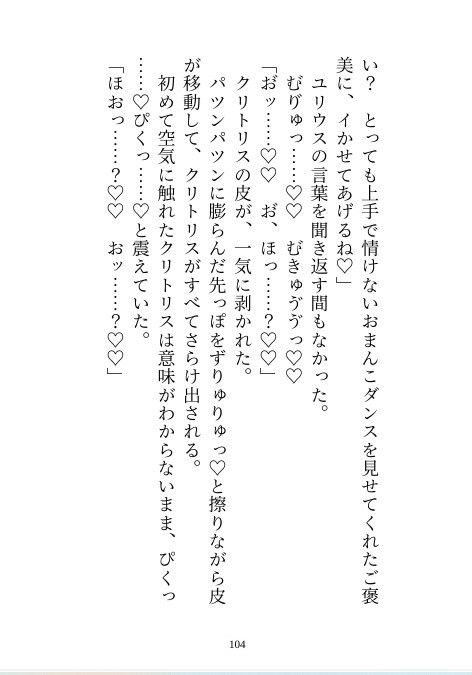 い？　とっても上手で情けないおまんこダンスを見せてくれたご褒
美に、イかせてあげるね♡」
　ユリウスの言葉を聞き返す間もなかった。
　むりゅっ……♡♡　むきゅゔゔっ♡♡
「お゙ッ……♡♡　お゙、ほっ……？♡♡」
　クリトリスの皮が、一気に剥かれた。
　パツンパツンに膨らんだ先っぽをずりゅりゅっ♡と擦りながら皮
が移動して、クリトリスがすべてさらけ出される。
　初めて空気に触れたクリトリスは意味がわからないまま、ぴくっ
……♡ぴくっ……♡と震えていた。
「ほおっ……？♡♡　おッ……？♡♡」
104